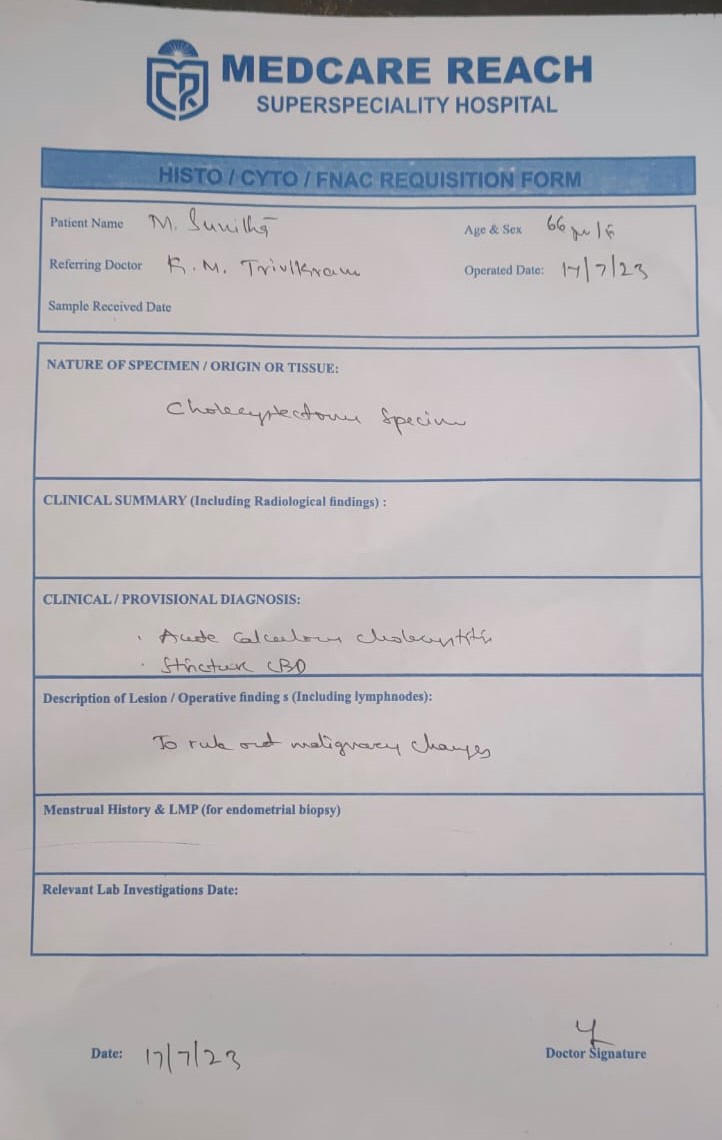 MEDCARE REACH
SUPERSPECIALITY HOSPITAL
HISTO / CYTO / FNAC REQUISITION FORM
Patient Name M. Sunitha Age & Sex 66 yr/F
Referring Doctor K. M. Trivikram Operated Date: 17/7/23
Sample Received Date
NATURE OF SPECIMEN / ORIGIN OR TISSUE:
Cholecystectomy Specimen
CLINICAL SUMMARY (Including Radiological findings) :
CLINICAL / PROVISIONAL DIAGNOSIS:
· Acute Calculous Cholecystitis
· Stricture CBD
Description of Lesion / Operative finding s (Including lymphnodes):
To rule out malignancy changes
Menstrual History & LMP (for endometrial biopsy)
Relevant Lab Investigations Date:
Date: 17/7/23
Doctor Signature